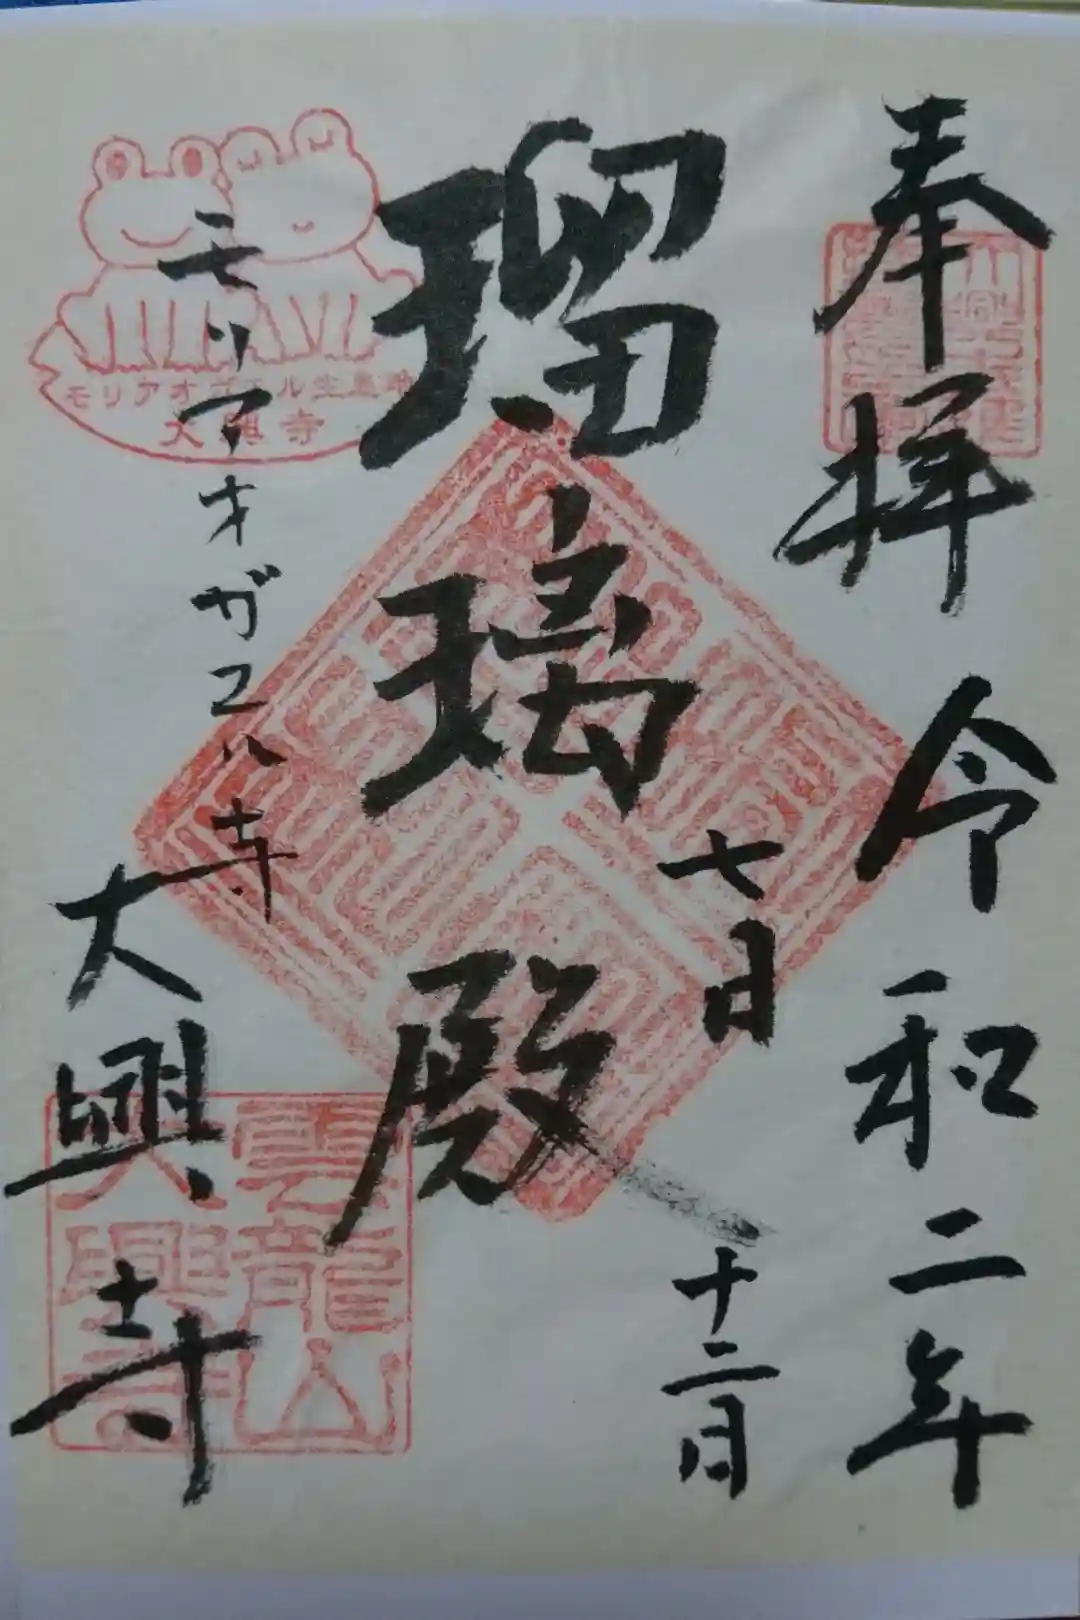 奉拝 令和二年
七月十二日
瑠璃殿
モリアオガエル寺
大興寺
モリアオガエル生息地
大興寺
雲龍山
大興寺